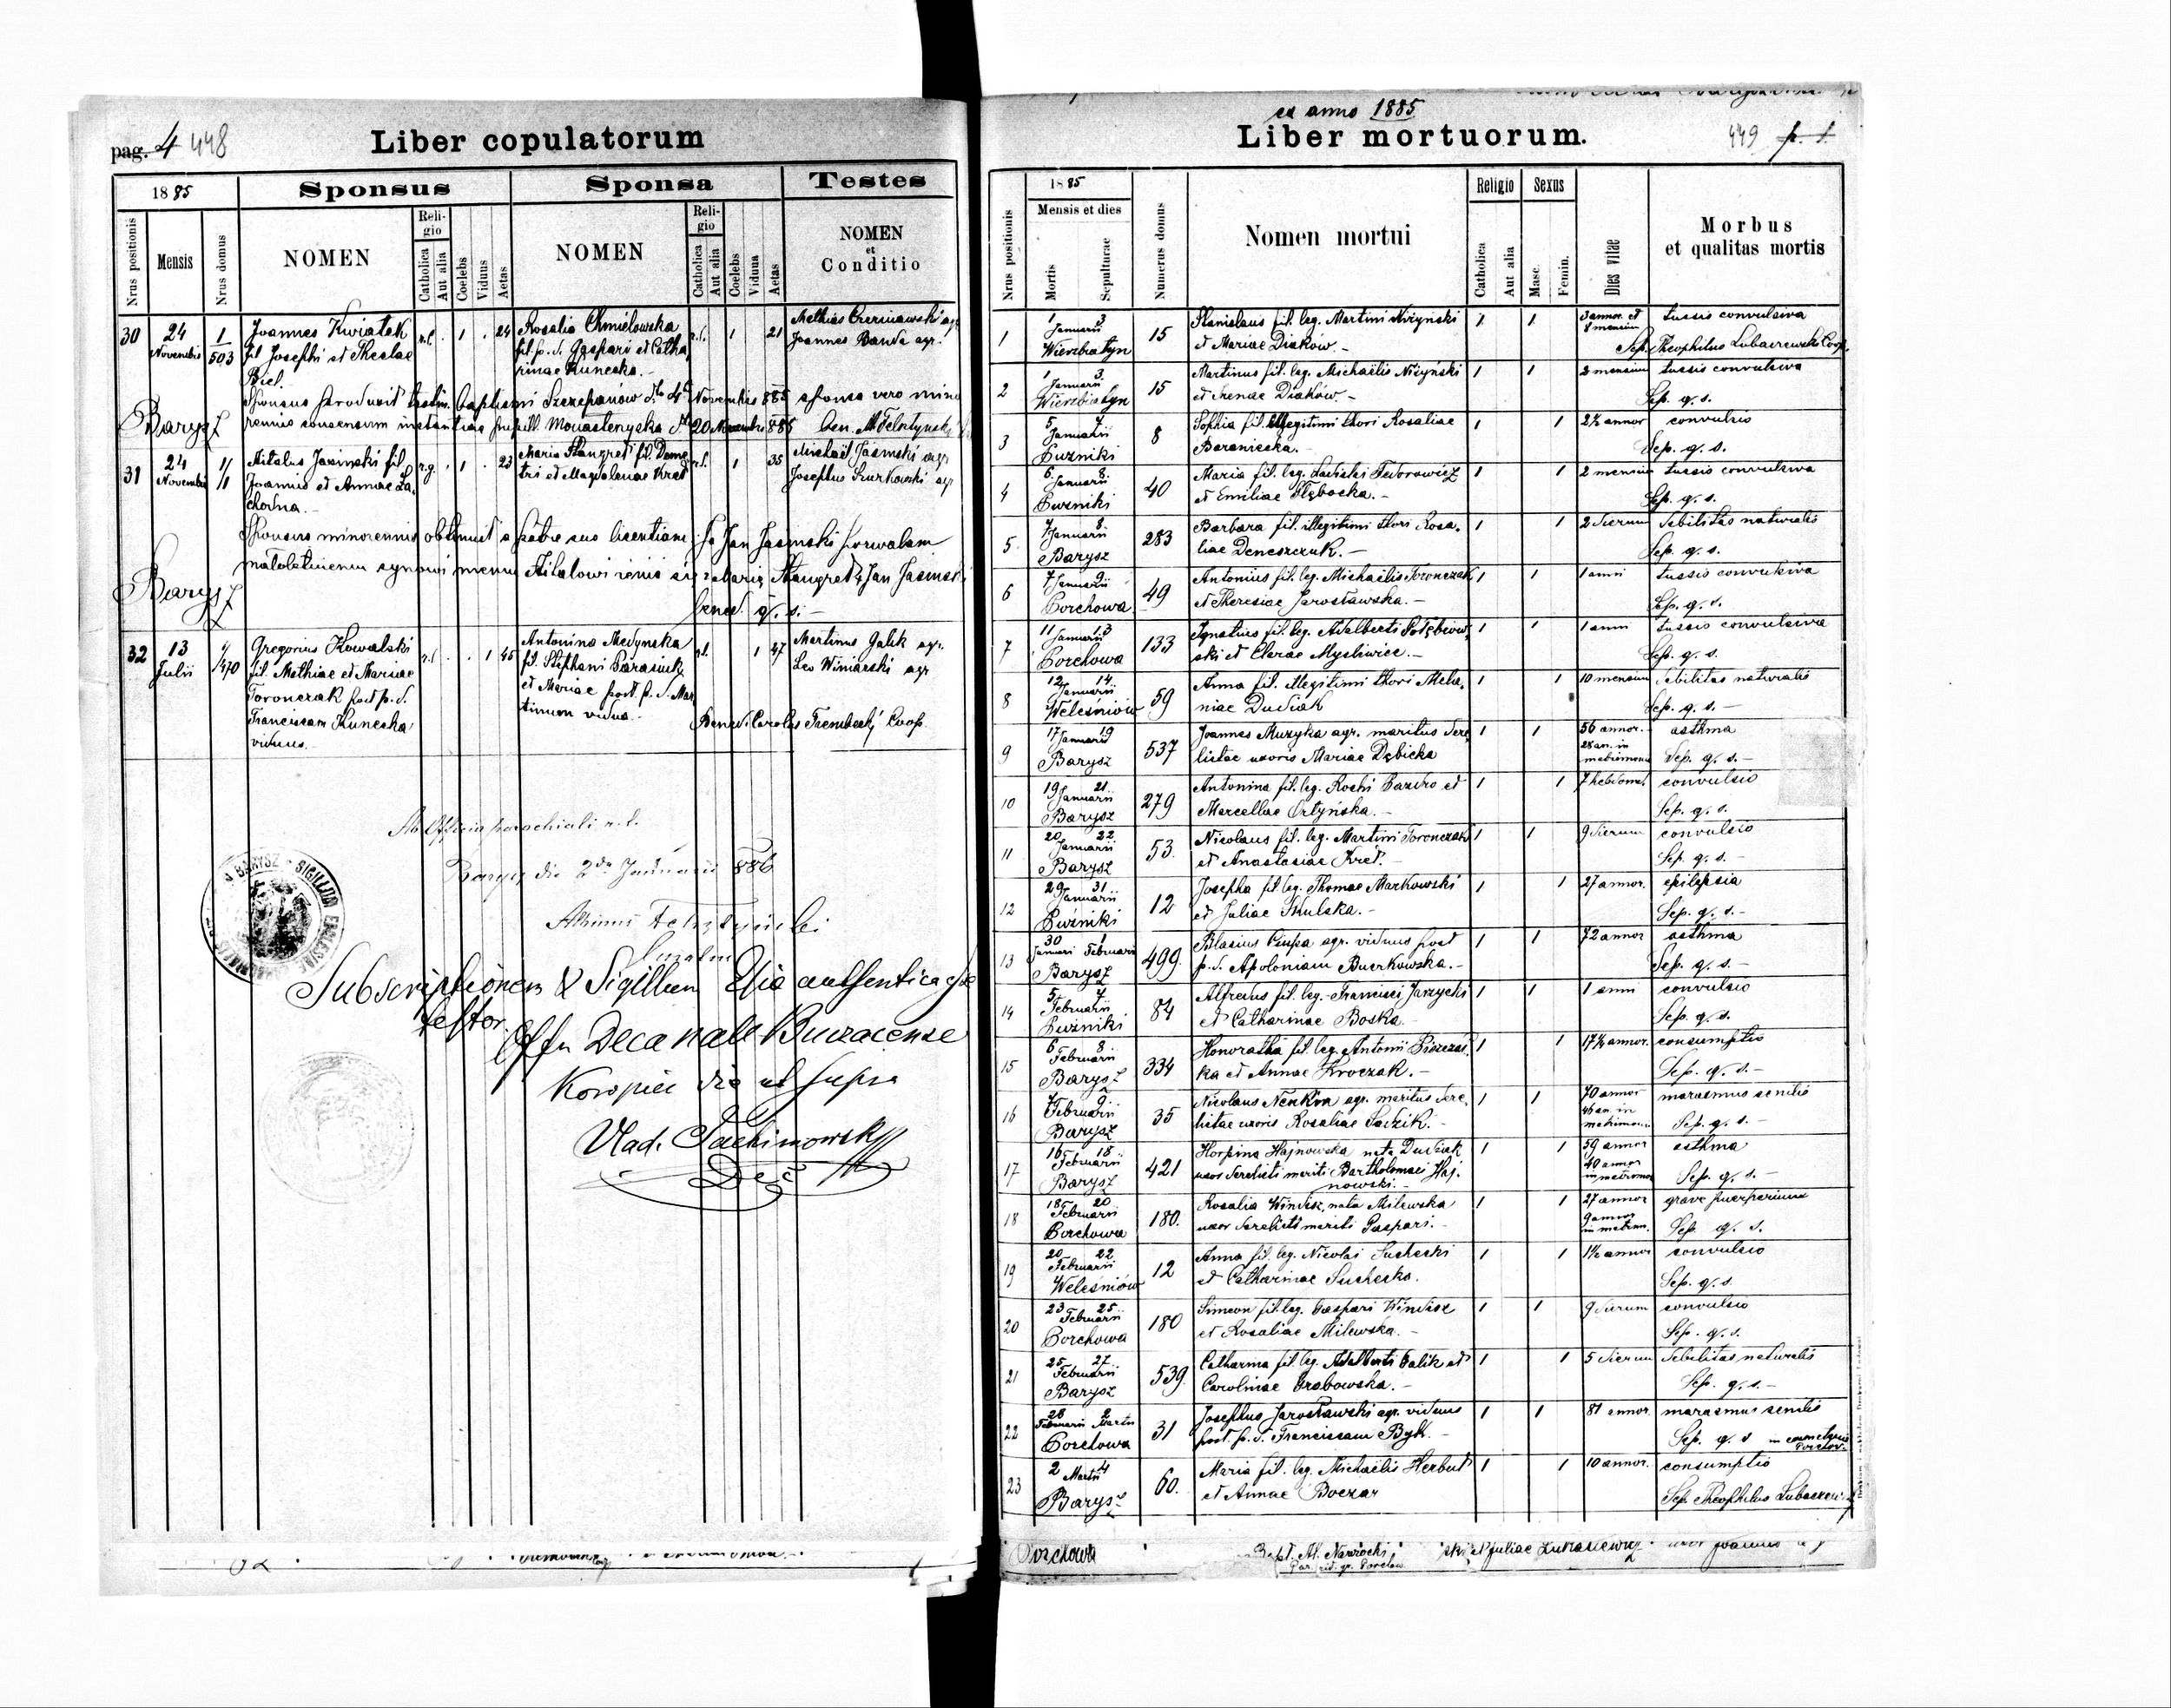 pag. 4 448
Liber copulatorum
1885
Sponsus
Sponsa
Testes
Nrus positionis
Mensis
Nrus domus
NOMEN
Religio
Catholica
Aut alia
Coelebs
Viduus
Aetas
NOMEN
Religio
Catholica
Aut alia
Coelebs
Vidua
Aetas
NOMEN
et
Conditio
30 24 Novembris 1/503 Joannes Kwiatek r.l. 1 24 Rosalia Chmielowska r.l. 1 21 Mathias Czerniawski agr.
fil Josephi et Theclae fil. p. d. Gaspari et Catha Joannes Banda agr.
Biel. rinae Kunecka.-
Sponsus produxit testim. baptismi Szczepanów dto 4 Novembris 885 sponsa vero mino
Barysz rennis consensum instantiae pupill. Monasterzyska dto 20 Novembris 885 Ben. A Felsztynski
31 24 Novembris 1/1 Hilalus Jasinski fil r.g. 1 23 Maria Sztangret fil. Deme r.l. 1 35 Michael Jasinski agr.
Joannis et Annae Za tri et Magdalenae Kret Josephus Szurkowski agr
chodna.-
Sponsus minorennis obtinuit a patre suo licentiam Ja Jan Jasinski pozwalam
małoletniemu synowi memu Hilalowi żenić się z Marią Sztangret Jan Jasinski
Barysz
bened. q. s. -
32 13 Julii 1/470 Gregorius Kowalski r.l. 1 45 Antonina Medynska r.l. 1 47 Martinus Galik agr.
fil. Mathiae et Mariae fil. Stephani Parasiuk Leo Winiarski agr
Toronczak post p. d. et Mariae post. p. d. Mar
Franciscam Kunecka tinum vidua.-
viduus. Bened. Carolus Trembecki Coop.
Ab Officio parochiali r.l.
Barysz die 2da Januarii 886
Albinus Felsztyński
Subscriptionem & Sigillum Qua authentica
testor.
Offm Decanale Buczacense
Koropiec die ut supra
Vlad. Jachimowski
Dec
ex anno 1885
Liber mortuorum.
449 p. 1.
1885
Nrus positionis
Mensis et dies
Mortis
Sepulturae
Numerus domus
Nomen mortui
Religio
Catholica
Aut alia
Sexus
Masc.
Femin.
Dies vitae
Morbus
et qualitas mortis
1 1 Januarii 3 15 Stanislaus fil. leg. Martini Niżynski 1 1 3 annor. et 8 mensium tussis convulsiva
Wierzbiatyn et Mariae Diaków.- Sep. Theophilus Lubaczewski Coop.
2 1 Januarii 3 15 Martinus fil. leg. Michaelis Niżyński 1 1 2 mensium tussis convulsiva
Wierzbiatyn et Irenae Diaków.- Sep. q. s.
3 5 Januarii 7 8 Sophia fil. illegitimi thori Rosaliae 1 1 2½ annor convulsio
Puzniki Baraniecka.- Sep. q. s.
4 6 Januarii 8 40 Maria fil. leg. Ladislai Fedorowicz 1 1 2 mensium tussis convulsiva
Puzniki et Emiliae Głębocka.- Sep. q. s.
5 7 Januarii 8 283 Barbara fil. illegitimi thori Rosa- 1 1 2 dierum debilitas naturalis
Barysz liae Deneszczuk.- Sep. q. s.
6 7 Januarii 9 49 Antonius fil. leg. Michaelis Toronczak 1 1 1 anni tussis convulsiva
Porchowa et Theresiae Jarosławska.- Sep. q. s.
7 11 Januarii 13 133 Ignatius fil. leg. Adalberti Gołębiow- 1 1 1 anni tussis convulsiva
Porchowa ski et Clarae Mysliwiec.- Sep. q. s.
8 12 Januarii 14 59 Anna fil. illegitimi thori Mela- 1 1 10 mensium debilitas naturalis
Weleśniów niae Dudiak Sep. q. s.-
9 17 Januarii 19 537 Joannes Muzyka agr. maritus dere- 1 1 56 annor. 28 an. in matrimonio asthma
Barysz lictae uxoris Mariae Dębicka Sep. q. s.-
10 19 Januarii 21 279 Antonina fil. leg. Rochi Bazdro et 1 1 7 hebdomad. convulsio
Barysz Marcellae Ortyńska.- Sep. q. s.
11 20 Januarii 22 53 Nicolaus fil. leg. Martini Toronczak 1 1 9 dierum convulsio
Barysz et Anastasiae Kret.- Sep. q. s.-
12 29 Januarii 31 12 Josepha fil. leg. Thomae Markowski 1 1 27 annor. epilepsia
Puzniki et Juliae Skulska.- Sep. q. s.-
13 30 Januarii 1 Februarii 499 Blasius Ciupa agr. viduus post 1 1 72 annor asthma
Barysz p. d. Apoloniam Burkowska.- Sep. q. s.-
14 5 Februarii 7 84 Alfredus fil. leg. Francisci Jarzycki 1 1 1 anni convulsio
Puzniki et Catharinae Boska. Sep. q. s.
15 6 Februarii 8 334 Honoratha fil. leg. Antonii 1 1 17½ annor. consumptio
Barysz ka et Annae Kroczak.- Sep. q. s.-
16 7 Februarii 9 35 Nicolaus Nenkra agr. maritus dere- 1 1 70 annor 46 an. in matrimon. marasmus senilis
Barysz lictae uxoris Rosaliae Sadzik.- Sep. q. s.-
17 16 Februarii 18 421 Horpina Hajnowska nata Dudiak 1 1 59 annor 40 annor in matrimon asthma
Barysz uxor derelicti mariti Bartholomaei Haj- Sep. q. s.-
nowski.-
18 18 Februarii 20 180. Rosalia Windisz, nata Milewska 1 1 27 annor 9 annor in matrim. grave puerperium
Porchowa uxor derelicti mariti Gaspari.- Sep. q. s.
19 20 Februarii 22 12 Anna fil. leg. Nicolai Suchecki 1 1 1½ annor convulsio
Weleśniów et Catharinae Suchecka. Sep. q. s.
20 23 Februarii 25 180 Simeon fil. leg. Gaspari Windisz 1 1 9 dierum convulsio
Porchowa et Rosaliae Milewska.- Sep. q. s.
21 25 Februarii 27 539. Catharina fil. leg. Adalberti Galik et 1 1 5 dierum debilitas naturalis
Barysz Carolinae Grabowska.- Sep. q. s.-
22 28 Februarii 2 Martii 31 Josephus Jarosławski agr. viduus 1 1 81 annor. marasmus senilis
Porchowa post. p. d. Franciscam Byk.- Sep. q. s in coemeterio Porchow.
23 2 Martii 4 60. Maria fil. leg. Michaelis Herbut 1 1 10 annor. consumptio
Barysz et Annae Boczar Sep. Theophilus Lubaczewski
Porchowa Bapt. Al. Nawrocki ski et Juliae Łukasiewicz uxor Joannis